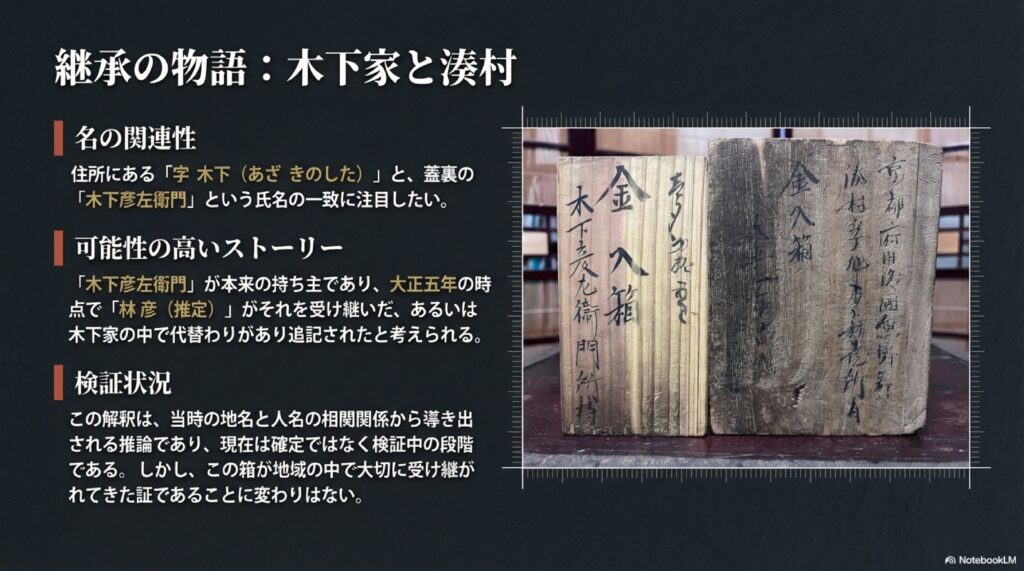 継承の物語：木下家と湊村
名の関連性
住所にある「字 木下（あざ きのした）」と、蓋裏の
「木下彦左衛門」という氏名の一致に注目したい。
可能性の高いストーリー
「木下彦左衛門」が本来の持ち主であり、大正五年の時
点で「林 彦（推定）」がそれを受け継いだ、あるいは
木下家の中で代替わりがあり追記されたと考えられる。
検証状況
この解釈は、当時の地名と人名の相関関係から導き出
される推論であり、現在は確定ではなく検証中の段階
である。しかし、この箱が地域の中で大切に受け継が
れてきた証であることに変わりはない。
金入箱
木下彦左衛門所持
京都府丹後國熊野郡
金入箱
NotebookLM